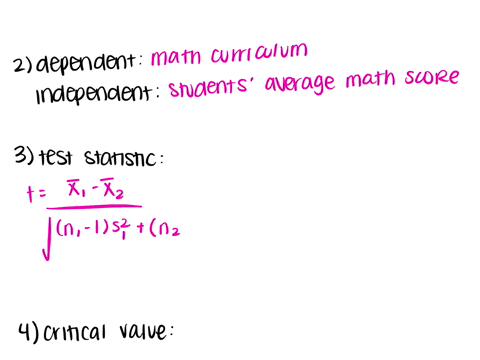 2) dependent: math curriculum
independent: students' average math score
3) test statistic:
t = x̄₁ - x̄₂
√(n₁-1)s₁² + (n₂
4) critical value: